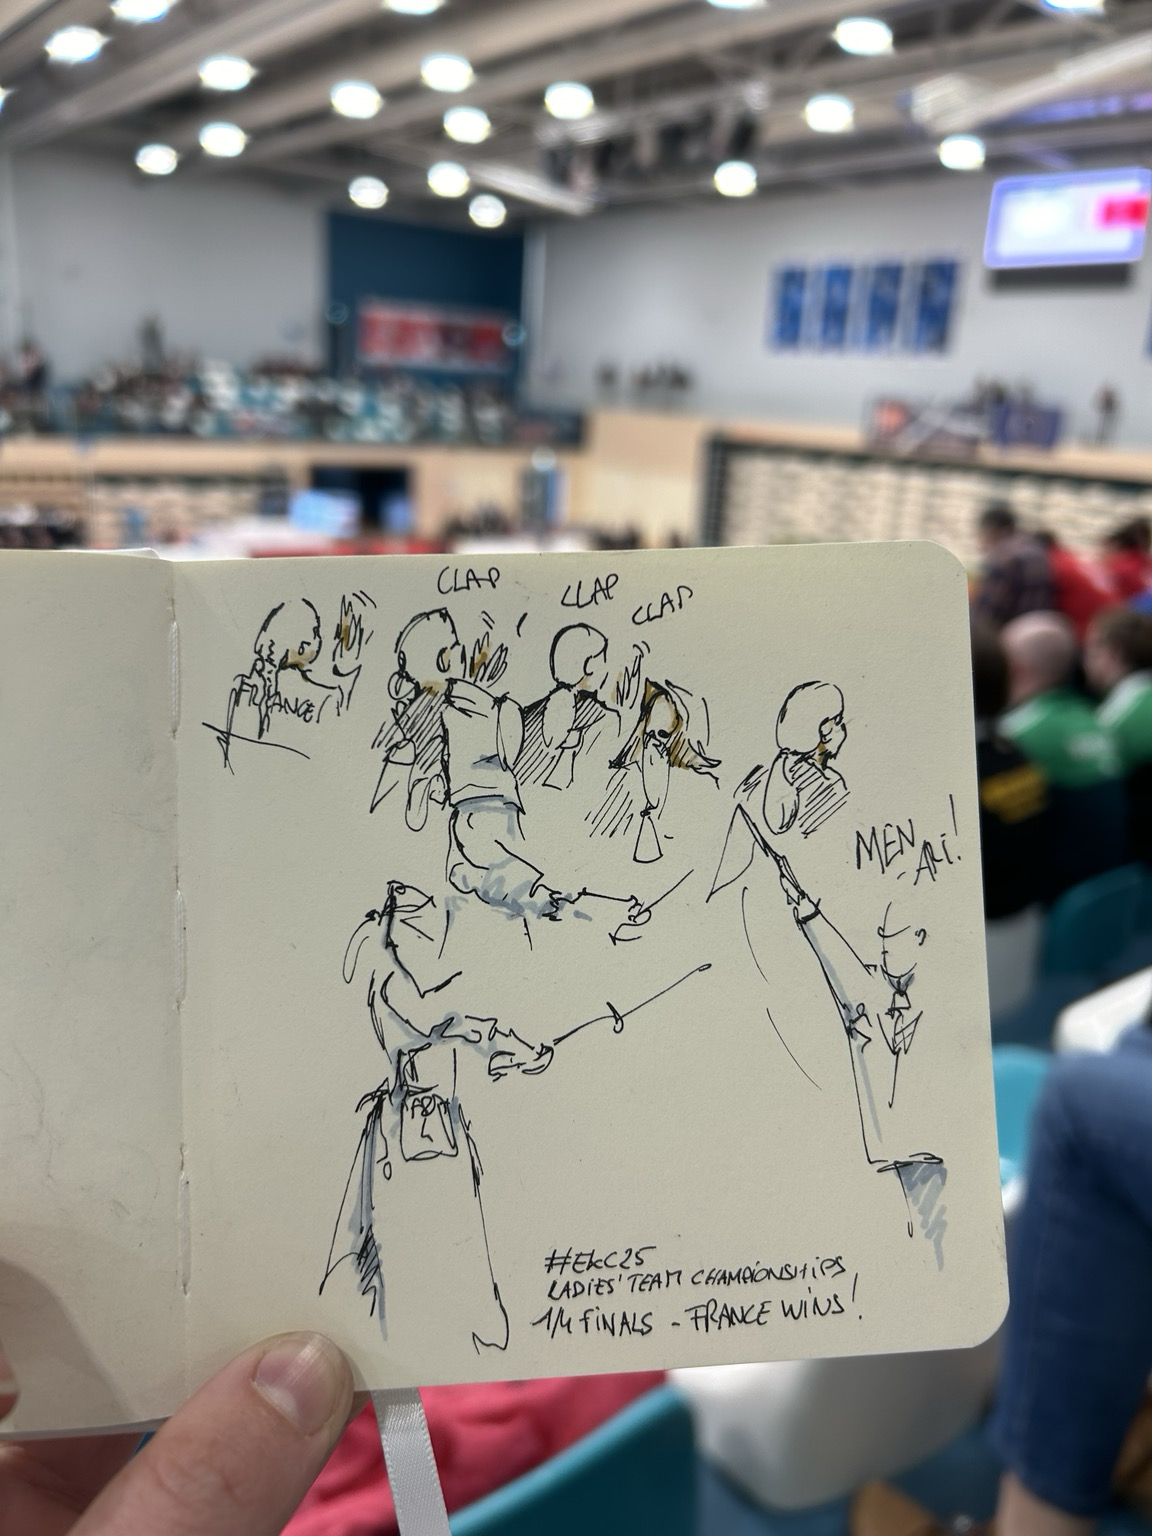 CLAP
CLAP
CLAP
FRANCE!
MEN
-ARI!
#EKC25
LADIES' TEAM CHAMPIONSHIPS
1/4 FINALS - FRANCE WINS!